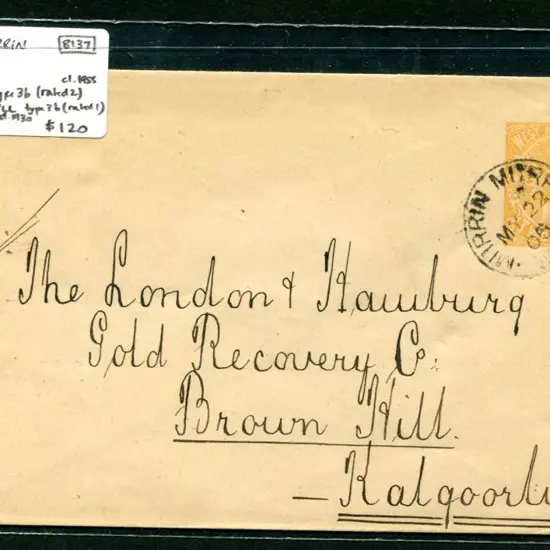 RRIN 8137
cl. 1955
type 3b (rated 2)
type 3b (rated 1)
$120
WEST
MURRIN MURR
22
05
The London & Hamburg
Gold Recovery Co:
Brown Hill.
— Kalgoorli